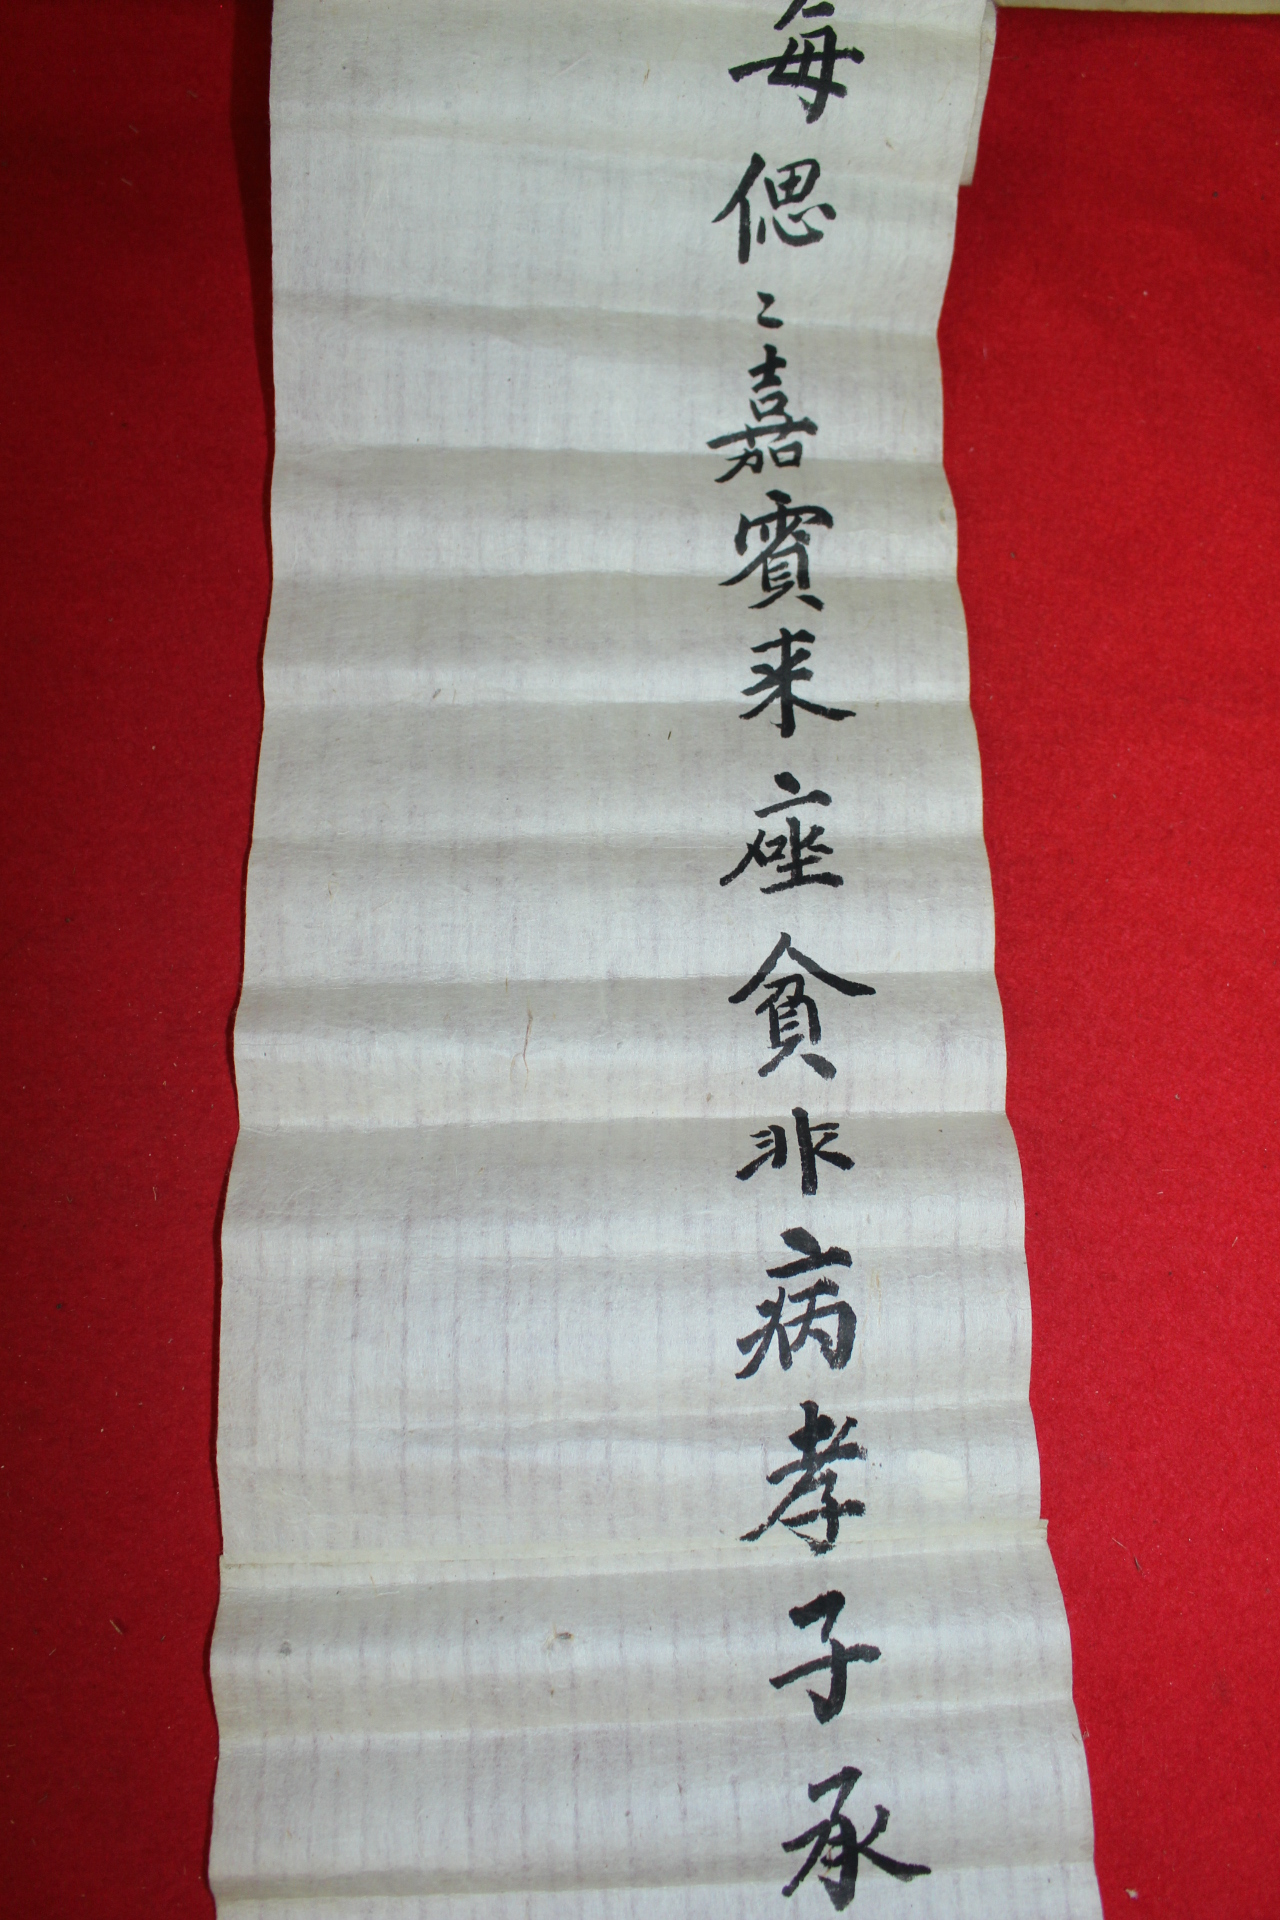 每偲〻嘉賓来座貧非病孝子承